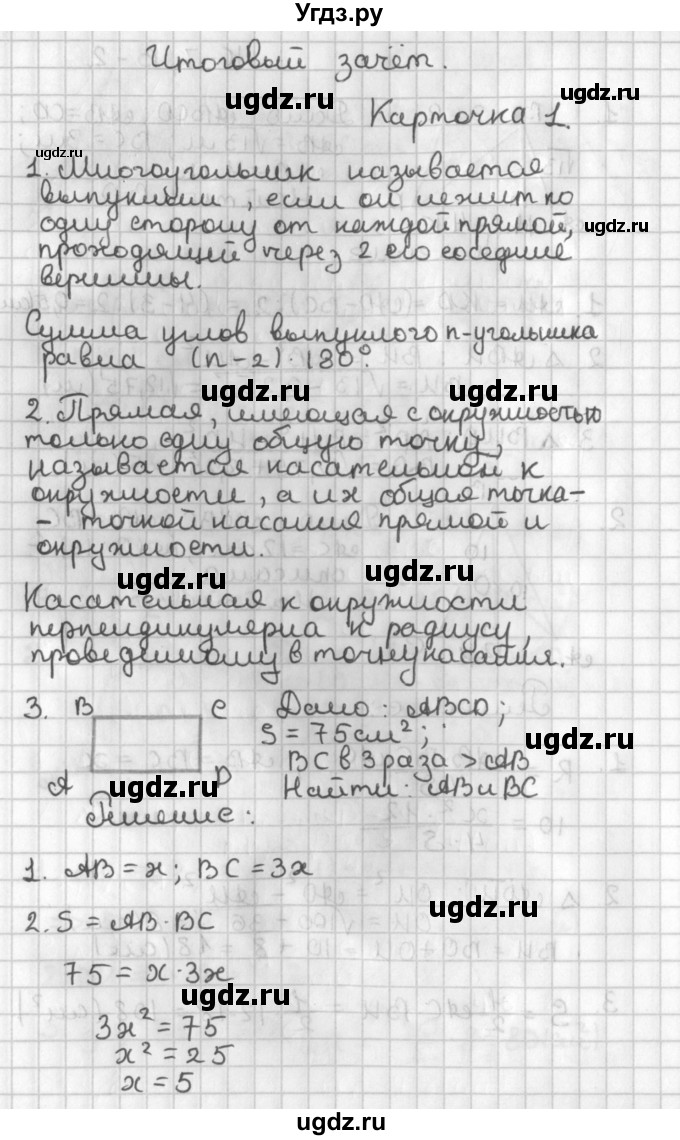 Угдз.ру
Итоговый зачёт.
ugdz.ru
Карточка 1.
ugdz.ru
1. Многоугольник называется
выпуклым, если он лежит по
одну сторону от каждой прямой,
ugdz.ru
проходящей через 2 его соседние
вершины.
Сумма углов выпуклого n-угольника
равна (n-2)·180°.
ugdz.ru
ugdz.ru
2. Прямая, имеющая с окружностью
только одну общую точку,
называется касательной к
окружности, а их общая точка-
- точкой касания прямой и
окружности.
ugdz.ru
ugdz.ru
Касательная к окружности
перпендикулярна к радиусу,
проведенному в точку касания.
3. B C Дано: ABCD;
S = 75 см²;
ugdz.ru
BC в 3 раза > AB
A D Найти: AB и BC
ugdz.ru
Решение:
1. AB = x; BC = 3x
ugdz.ru
2. S = AB·BC
75 = x·3x
ugdz.ru
3x² = 75
x² = 25
x = 5
ugdz.ru